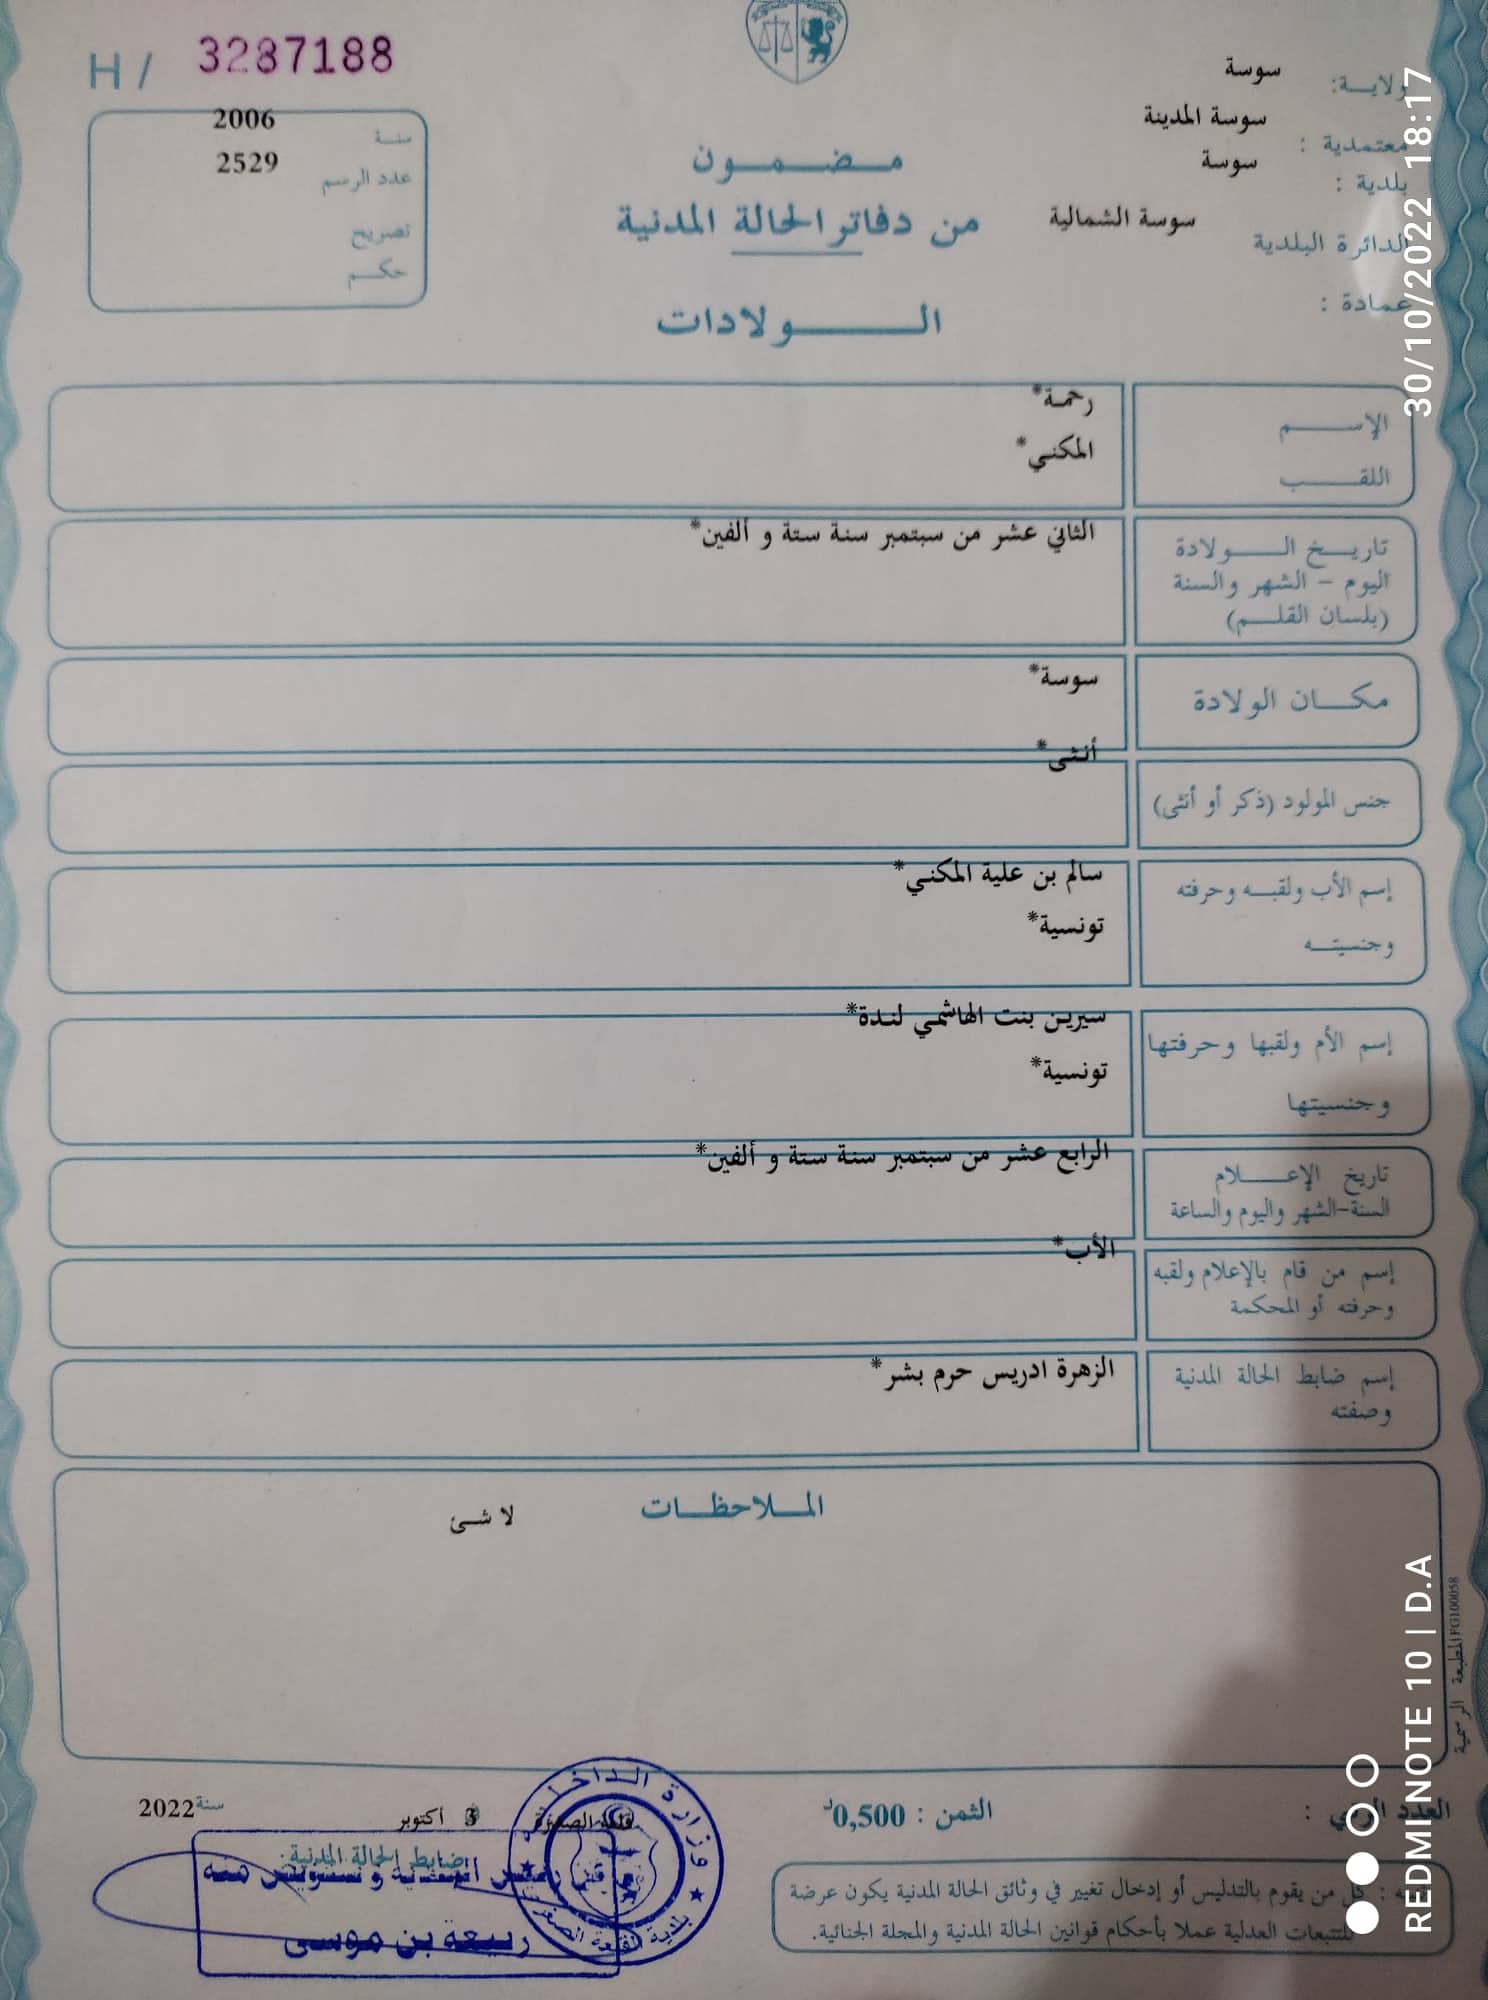 H / 3287188
سنة 2006
عدد الرسم 2529
تصريح
حكم
مضمون
من دفاتر الحالة المدنية
الولادات
ولاية: سوسة
معتمدية : سوسة المدينة
بلدية : سوسة
الدائرة البلدية سوسة الشمالية
عمادة :
الإسم رحمة*
اللقب المكني*
تاريخ الولادة الثاني عشر من سبتمبر سنة ستة و ألفين*
اليوم - الشهر والسنة
(بلسان القلم)
مكان الولادة سوسة*
جنس المولود (ذكر أو أنثى) أنثى*
إسم الأب ولقبه وحرفته سالم بن علية المكني*
وجنسيته تونسية*
إسم الأم ولقبها وحرفتها سيرين بنت الهاشمي لندة*
وجنسيتها تونسية*
تاريخ الإعلام الرابع عشر من سبتمبر سنة ستة و ألفين*
السنة-الشهر واليوم والساعة
إسم من قام بالإعلام ولقبه الأب*
وحرفته أو المحكمة
إسم ضابط الحالة المدنية الزهرة ادريس حرم بشر*
وصفته
الملاحظات
لا شئ
المطبعة الرسمية FG100058
العدد الرتبي :
الثمن : 0,500د
القلعة الصغرى 3 أكتوبر سنة 2022
ضابط الحالة المدنية:
ربيعة بن موسى
وزارة الداخلية
بلدية القلعة الصغرى
كل من يقوم بالتدليس أو إدخال تغيير في وثائق الحالة المدنية يكون عرضة
للتتبعات العدلية عملا بأحكام قوانين الحالة المدنية والمجلة الجنائية.
30/10/2022 18:17
REDMI NOTE 10 | D.A